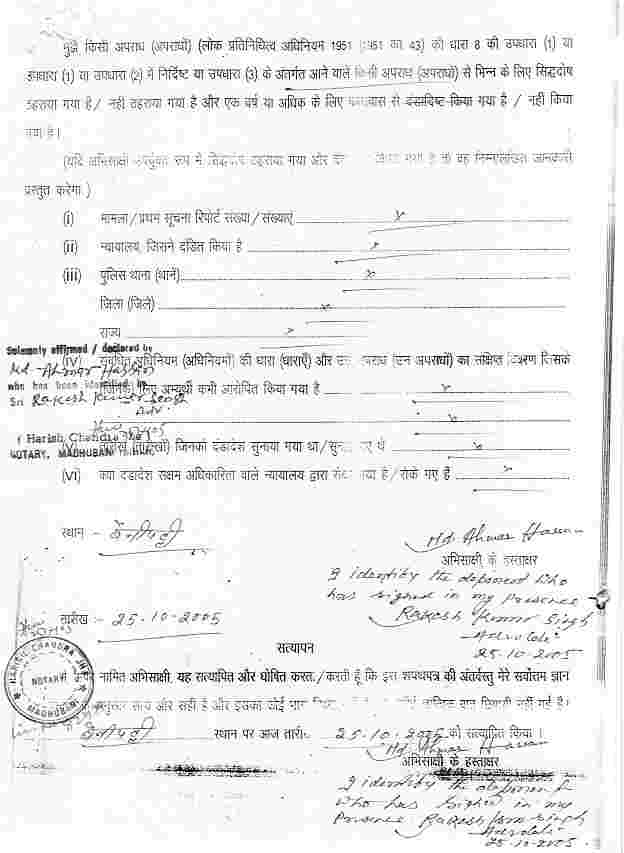 मुझे किसी अपराध (अपराधों) (लोक प्रतिनिधित्व अधिनियम 1951 (1951 का 43) की धारा 8 की उपधारा (1) या
उपधारा (1) या उपधारा (2) में निर्दिष्ट या उपधारा (3) के अंतर्गत आने वाले किसी अपराध (अपराधों) से भिन्न के लिए सिद्धदोष
ठहराया गया है / नहीं ठहराया गया है और एक वर्ष या अधिक के लिए कारावास से दंडादिष्ट किया गया है / नहीं किया
गया है।
(यदि अभिसाक्षी उपर्युक्त रूप में सिद्धदोष ठहराया गया और किया गया है तो वह निम्नलिखित जानकारी
प्रस्तुत करेगा )
(i) मामला / प्रथम सूचना रिपोर्ट संख्या / संख्याएं x
(ii) न्यायालय, जिसने दंडित किया है x
(iii) पुलिस थाना (थानें) x
जिला (जिले) x
राज्य x
Solemnly affirmed / declared by
(IV) संबंधित अधिनियम (अधिनियमों) की धारा (धाराएँ) और उस अपराध (उन अपराधों) का संक्षिप्त विवरण जिसके
Md. Ahmar Hassan
who has been identified by
(जिनके) लिए अभ्यर्थी कभी आरोपित किया गया है x
Sri Rakesh Kumar Singh
Adv.
x
( Harish Chandra Jha )
(V) तारीख (तारीखों) जिनको दंडादेश सुनाया गया था / सुनाए गए थे x
NOTARY, MADHUBANI
(VI) क्या दंडादेश सक्षम अधिकारिता वाले न्यायालय द्वारा रोका गया है / रोके गए हैं x
स्थान - बेनीपट्टी
Md. Ahmar Hassan
अभिसाक्षी के हस्ताक्षर
I identify the deponent who
has signed in my presence
Rakesh Kumar Singh
Advocate
25.10.2005
तारीख - 25.10.2005
सत्यापन
HARISH CHANDRA JHA
NOTARY
MADHUBANI
नामित अभिसाक्षी, यह सत्यापित और घोषित करता / करती हूँ कि इस शपथपत्र की अंतर्वस्तु मेरे सर्वोत्तम ज्ञान
अनुसार सत्य और सही है और इसका कोई भाग नहीं गई है।
बेनीपट्टी स्थान पर आज तारीख 25.10.2005 को सत्यापित किया ।
Md. Ahmar Hassan
अभिसाक्षी के हस्ताक्षर
I identify the deponent
who has signed in my
Presence Rakesh Kumar Singh
Advocate
25.10.2005